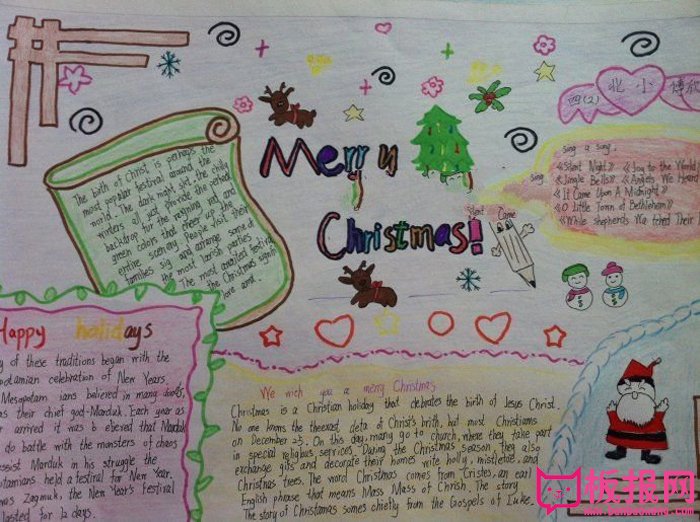 Merry
Christmas!
四(2)
北小
The birth of Christ is perhaps the
most popular festival around the
world. The dark night set the chilly
winters all just provide the perfect
backdrop for the reigning red and
green colors that cheer up the
entire scenery. People visit their
families and arrange some of
the most lavish parties
The most greatest festival
the Christmas
sing a song
sing
《Silent Night》 《Joy to the World》
《Jingle Bells》 《Angels We Heard
《It Came Upon A Midnight》
《O Little Town of Bethlehem》
《While shepherds Wa tched Their
Happy holidays
of these traditions began with the
opotamian celebration of New Years.
Mesopotam ians believed in many gods,
as their chief god-Marduk. Each year as
arrived it was b elieved that Marduk
do battle with the monsters of chaos
ssist Marduk in his struggle the
otamians held a festival for New Year.
was Zagmuk, the New Year's festival
lasted for 12 days.
We wich you a merry Christmas
Christmas is a Christian holiday that clebrates the birth of Jesus Christ.
No one knows theexact data of Christ's brith, but most Christians
on December 25. On this day, many go to church, where they take part
in special religious services. During the Christmas season, they also
exchange gifts and decorate their homes wite holly, mistletoe, and
Christmas trees. The word Christmas comes from Cristes, an earl
English phrase that means Mass Mass of Christ. The story
The story of Chirstamas somes chiefly from the Gospels of Luke.
板报网